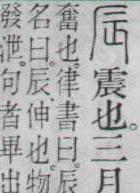 辰震也。三月
奮也。律書曰。辰
名曰。辰、伸也。物
發泄。句者畢出